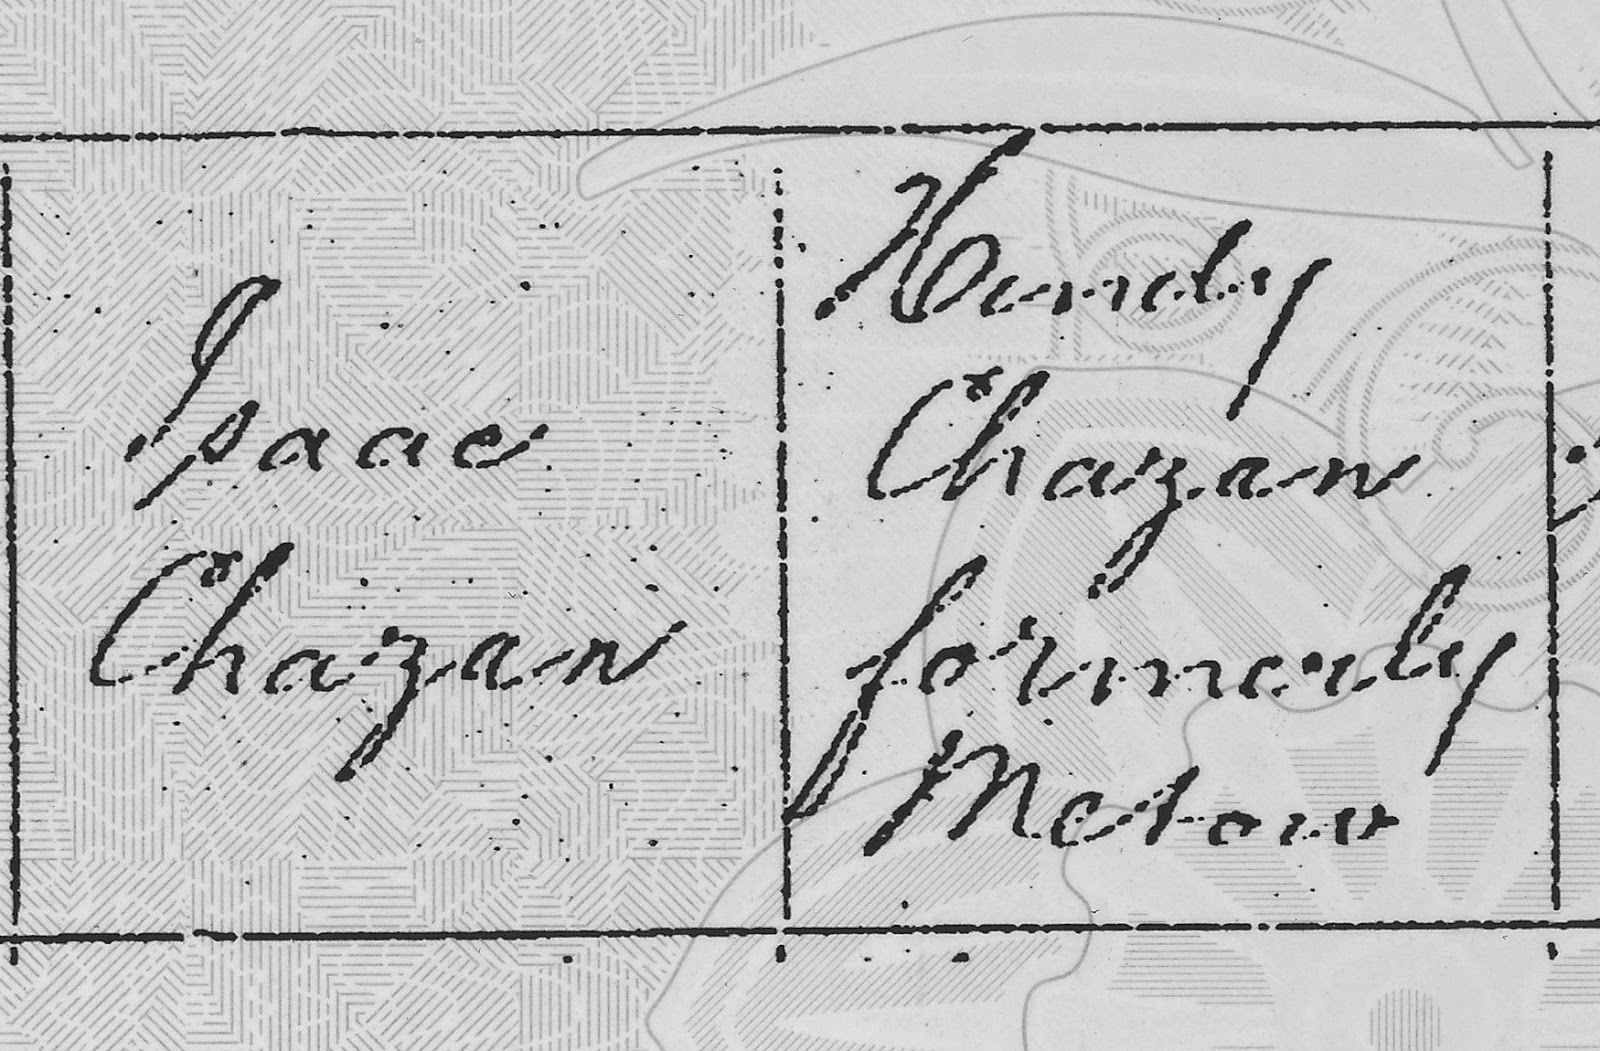 Isaac
Chazan
Hundy
Chazan
formerly
Metow